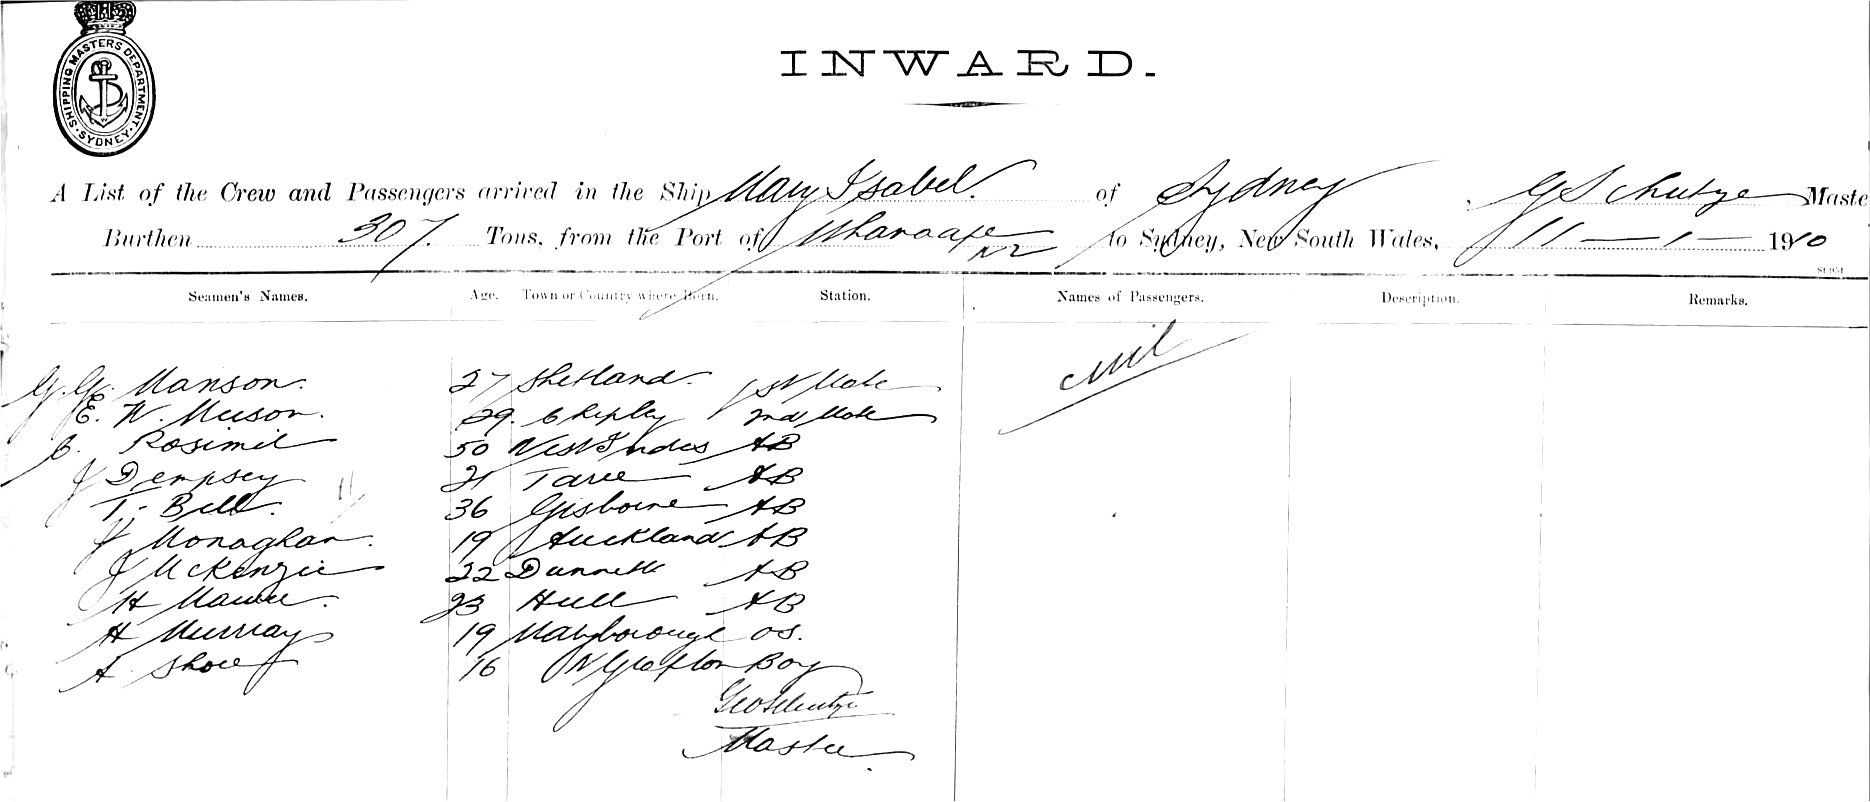 SHIPPING MASTERS DEPARTMENT. SYDNEY.
INWARD.
A List of the Crew and Passengers arrived in the Ship Mary Isabel. of Sydney, G Schutze Maste
Burthen 307. Tons, from the Port of NZ to Sydney, New South Wales, 11 - 1 - 1910
Seamen's Names. Age. Town or Country where Born. Station. Names of Passengers. Description. Remarks.
nil
G. Manson. 27 Shetland. 1st Mate
E. W. 29. Shipley 2nd Mate
C. Rosimil 50 West Indies AB
J Dempsey 21 Taree AB
T. Bell. 36 Gisborne AB
Monaghan. 19 Auckland AB
J McKenzie 22 AB
H 23 Hull AB
H Murray 19 Maryborough OS.
A 16 N Grafton Boy
Geo Schutze
Master